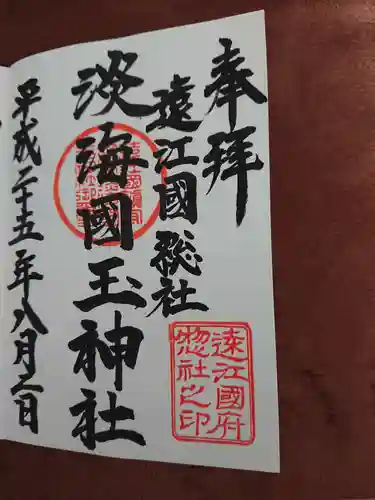 奉拝
遠江國総社
淡海國玉神社
平成二十五年八月三日
遠江國府
惣社之印